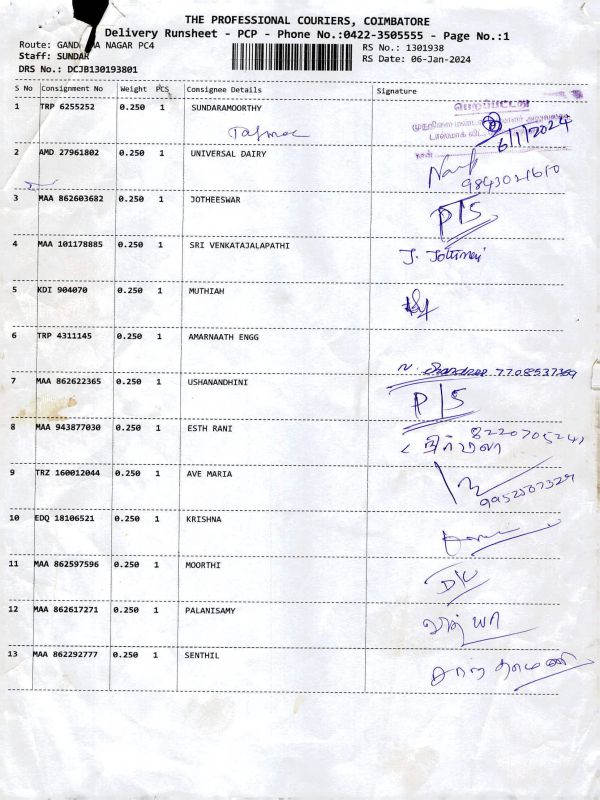 THE PROFESSIONAL COURIERS, COIMBATORE
Delivery Runsheet - PCP - Phone No.:0422-3505555 - Page No.:1
Route: GANDHI MA NAGAR PC4 RS No.: 1301938
Staff: SUNDAR RS Date: 06-Jan-2024
DRS No.: DCJB130193801
S No Consignment No Weight PCS Consignee Details Signature
1 TRP 6255252 0.250 1 SUNDARAMOORTHY பெறப்பட்டது
Tasmac 6/1/2024
2 AMD 27961802 0.250 1 UNIVERSAL DAIRY
9843021610
3 MAA 862603682 0.250 1 JOTHEESWAR P/S
4 MAA 101178885 0.250 1 SRI VENKATAJALAPATHI J. Jothimani
5 KDI 904070 0.250 1 MUTHIAH
6 TRP 4311145 0.250 1 AMARNAATH ENGG
7 MAA 862622365 0.250 1 USHANANDHINI P/S
8 MAA 943877030 0.250 1 ESTH RANI 8220705241
நிர்மலா
9 TRZ 160012044 0.250 1 AVE MARIA
9952507329
10 EDQ 18106521 0.250 1 KRISHNA
11 MAA 862597596 0.250 1 MOORTHI D/C
12 MAA 862617271 0.250 1 PALANISAMY
13 MAA 862292777 0.250 1 SENTHIL சாந்தாமணி